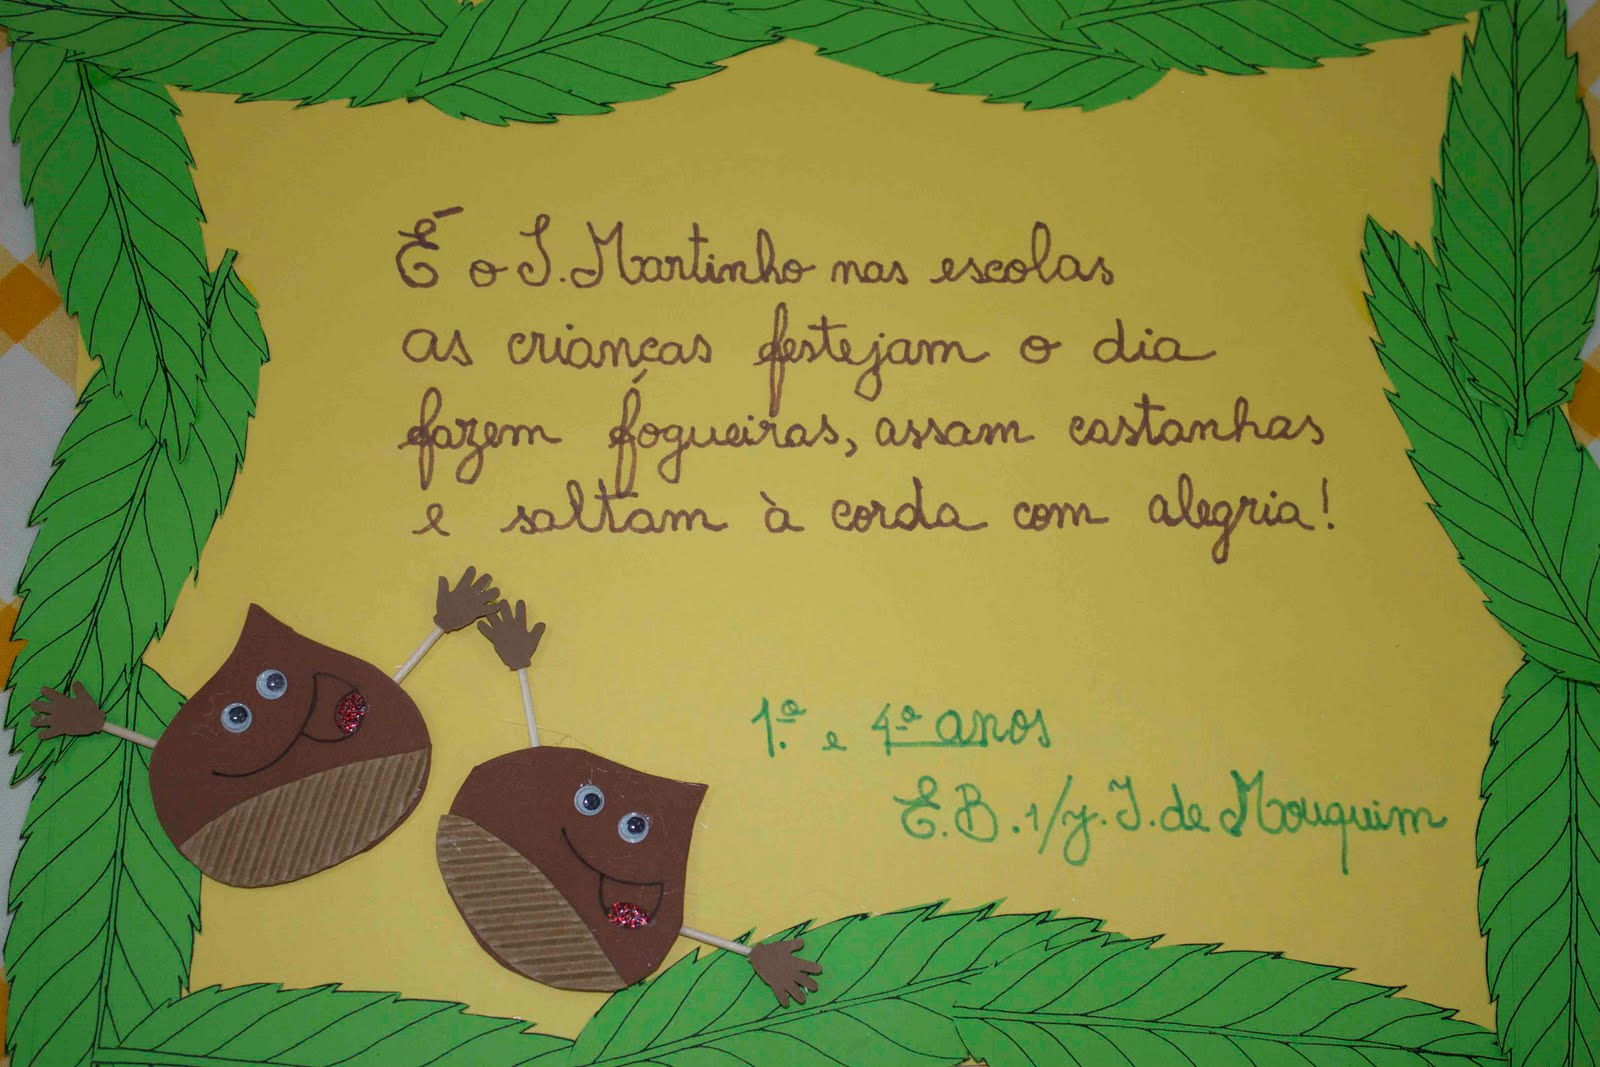 É o S. Martinho nas escolas
as crianças festejam o dia
fazem fogueiras, assam castanhas
e saltam à corda com alegria!
1.º e 4.º anos
E.B.1/J.I. de Mouquim